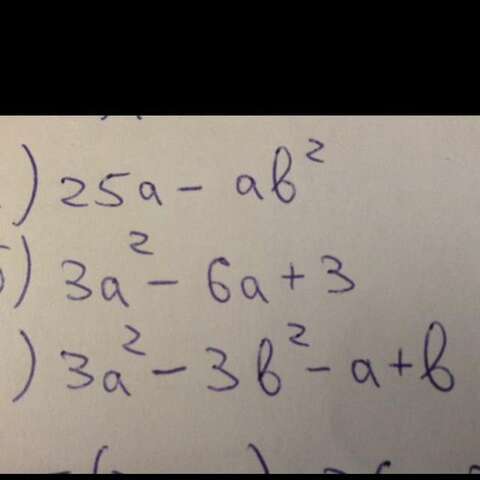 ) 25a - ab²
б) 3a² - 6a + 3
) 3a² - 3b² - a + b